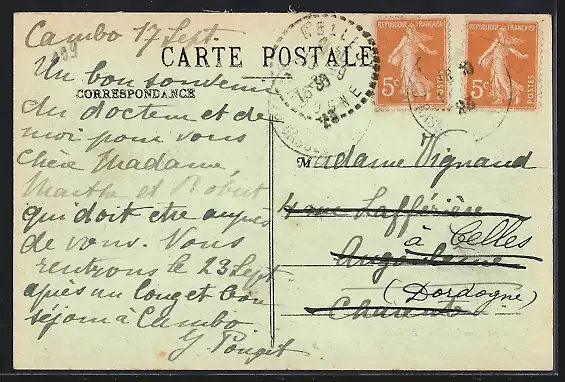 Cambo 17 Sept.
CARTE POSTALE
Un bon souvenir
CORRESPONDANCE
du docteur et de
moi pour vous
chère Madame,
Marthe et Robert
qui doit être auprès
de vous. Vous
rentrons le 23 Sept
après un long et bon
séjour à Cambo.
Y Pouget
REPUBLIQUE FRANÇAISE
5c
POSTES
REPUBLIQUE FRANÇAISE
5c
POSTES
Madame Vignaud
4 rue Lafférière
à Celles
Angoulême
(Dordogne)
Charente